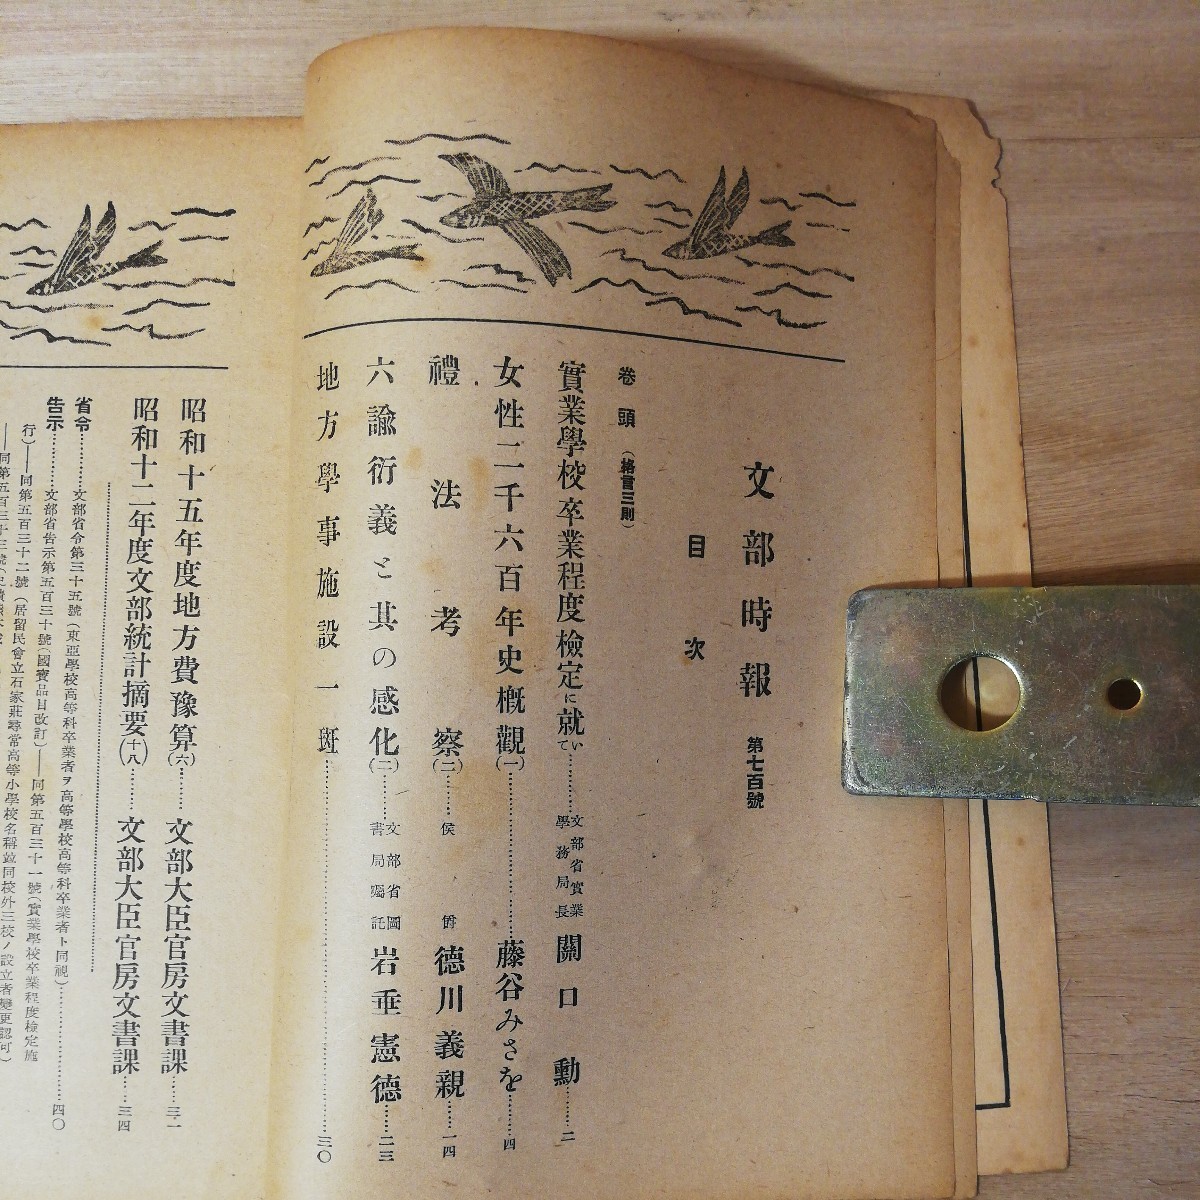 文部時報 第七百號
目次
卷頭（格言三則）
實業學校卒業程度檢定に就いて……文部省實業學務局長 關口勳……二
女性二千六百年史概觀(一)……藤谷みさを……四
禮法考察(二)……侯爵 德川義親……一四
六諭衍義と其の感化(二)……文部省圖書局囑託 岩垂憲德……二三
地方學事施設一斑……三〇
昭和十五年度地方費豫算(六)……文部大臣官房文書課……三一
昭和十二年度文部統計摘要(十八)……文部大臣官房文書課……三四
省令……文部省令第三十五號(東亞學校高等科卒業者ヲ高等學校高等科卒業者ト同視)……四〇
告示……文部省告示第五百三十號(國寶品目改訂)——同第五百三十一號(實業學校卒業程度檢定施
行)——同第五百三十二號(居留民會立石家莊尋常高等小學校名稱竝同校外三校ノ設立者變更認可)
——同第五百三十三號